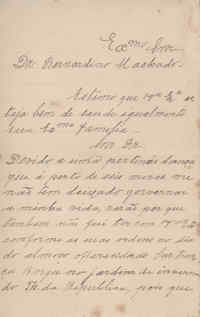 Exmo Snr.
Dr. Bernardino Machado.
Estimo que V. Exa es
teja bem de saude egualmente
sua Exma familia.
Snr Dr.
Devido a uma pertinaz doença
que á perto de seis meses me
não tem deixado governar
a minha vida, razão por que
tambem não fui ter com V. Exa
conforme as suas ordens no dia
do almoço offerecido
no jardim de inverno
do Th. da Republica, pois que